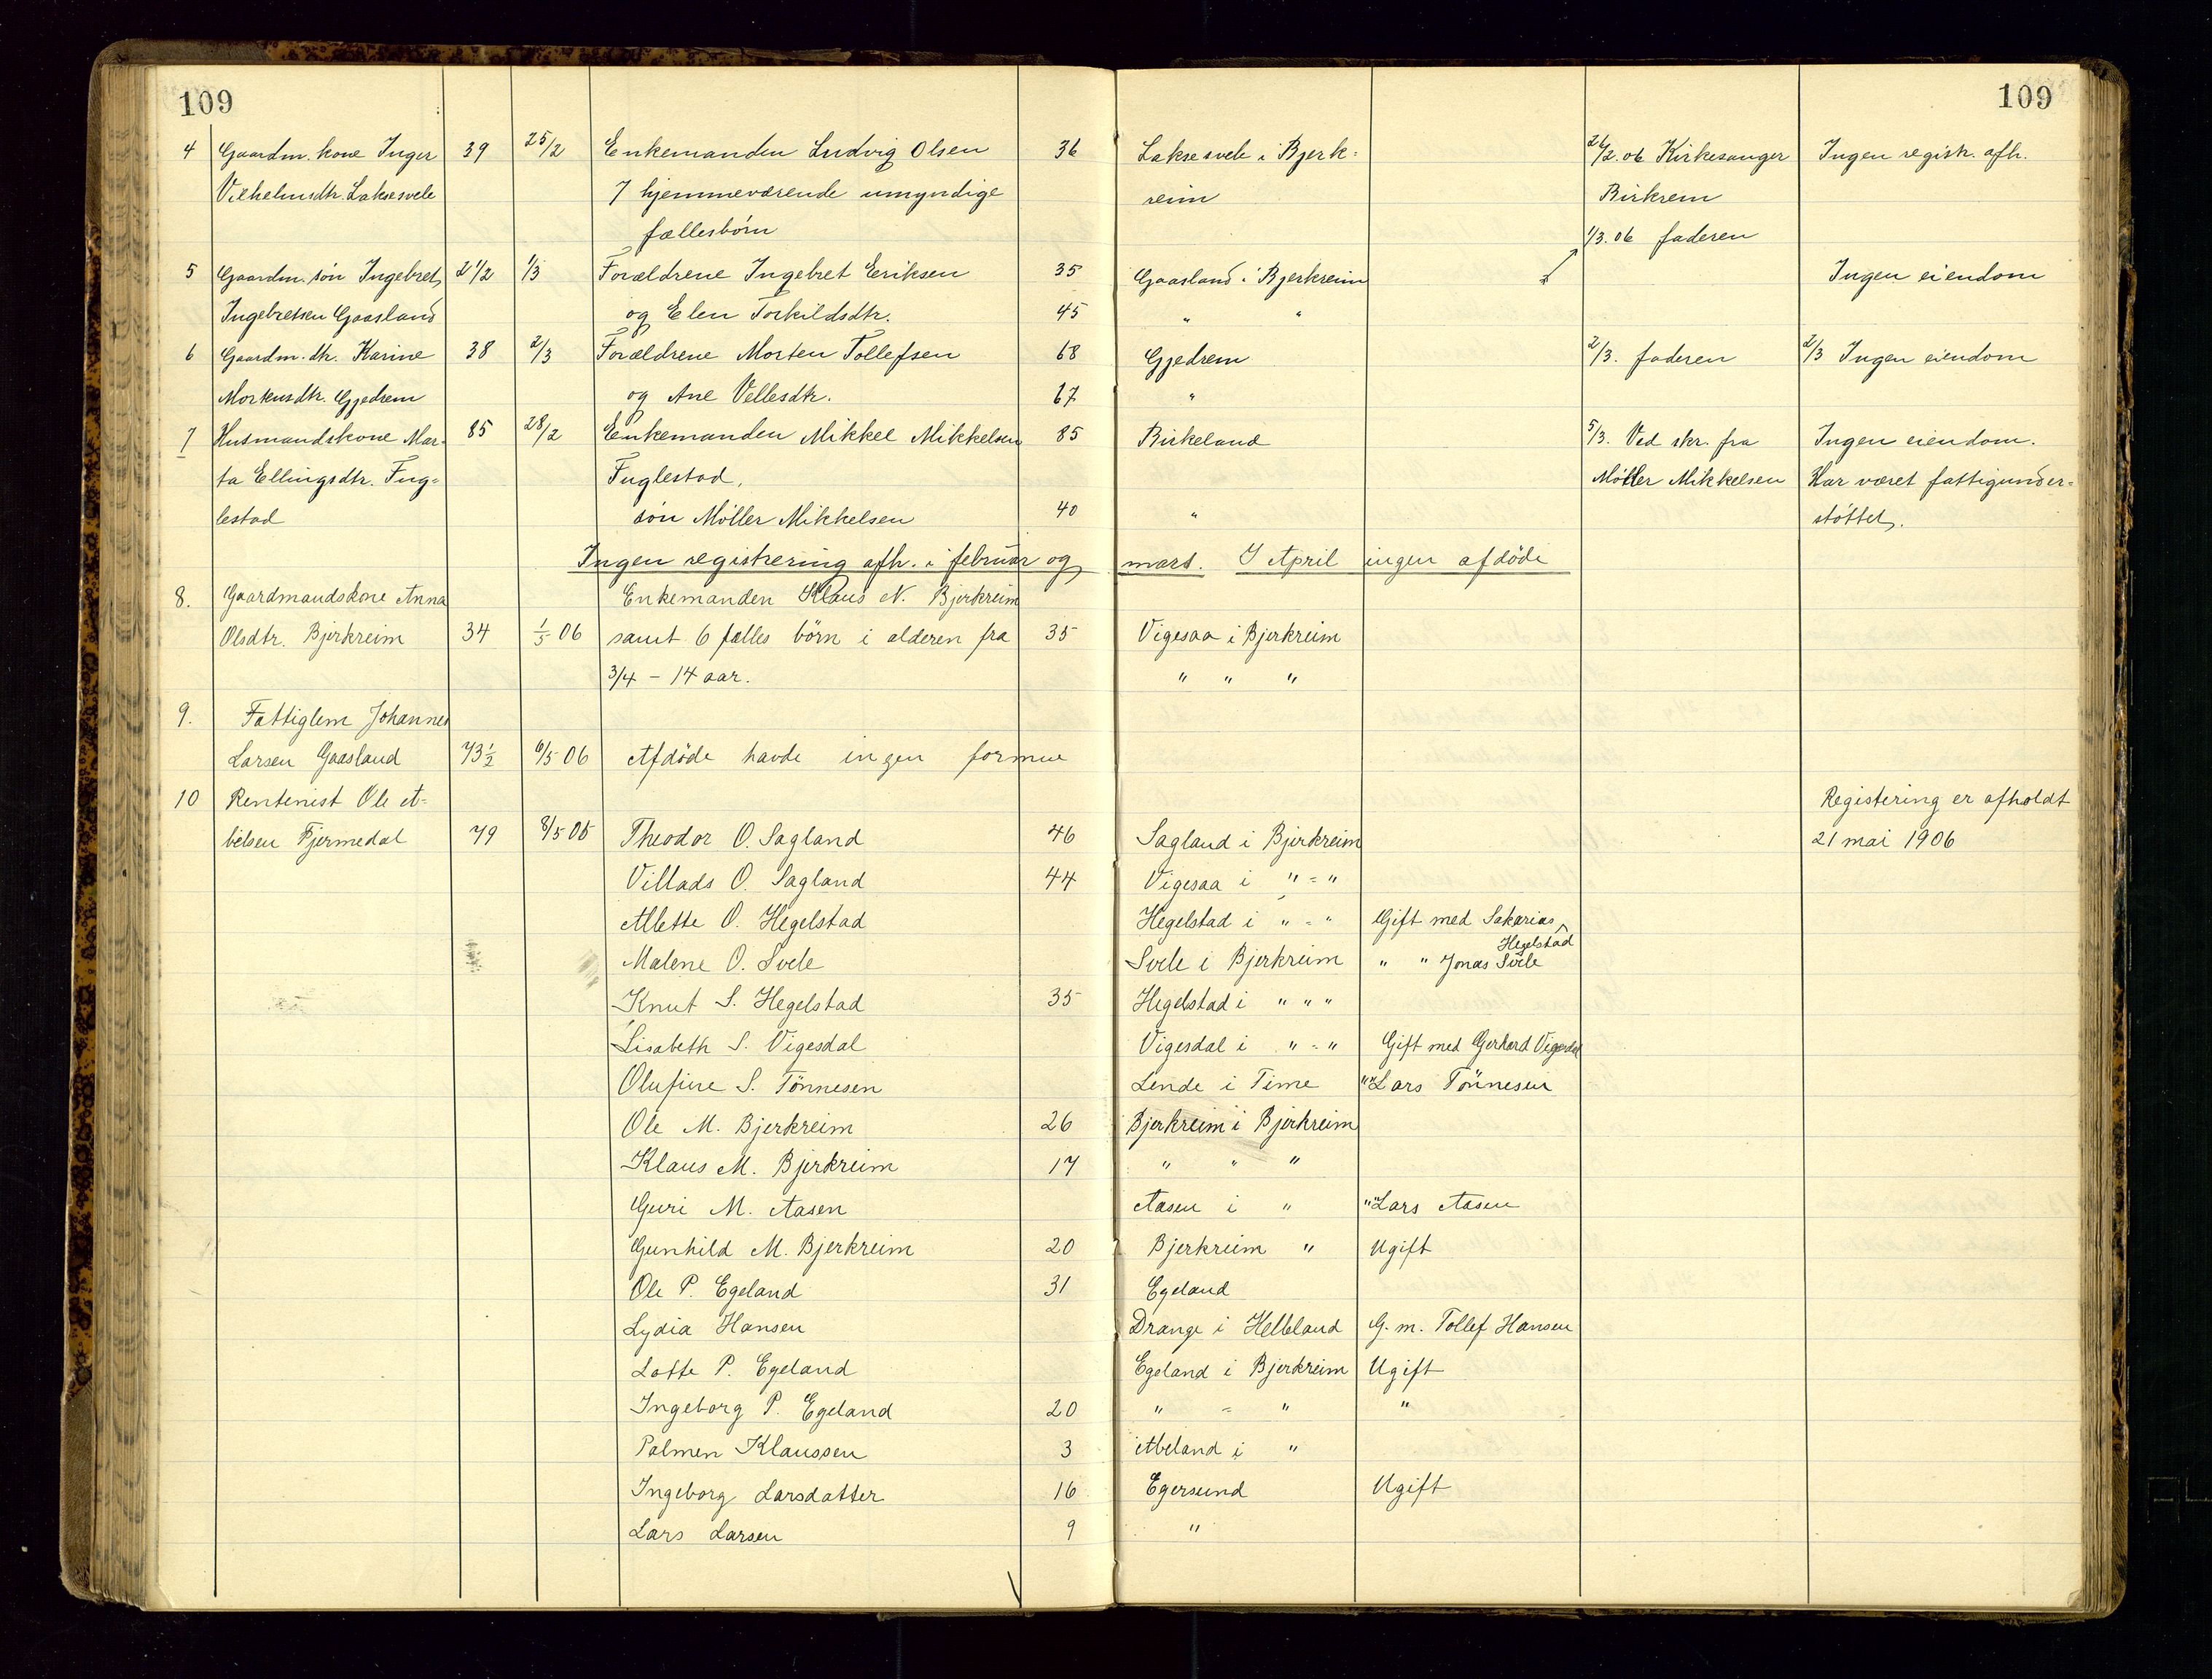 109 109
4 Gaardm. kone Inger 39 25/2 Enkemanden Ludvig Olsen 36 Laksesvele i Bjerk= 26/2.06 Kirkesanger Ingen registr. afh.
Vilhelmsdtr. Laksesvele 7 hjemmeværende umyndige reim Birkrem
fællesbörn 1/3.06 faderen
5 Gaardm. sön Ingebret 2 1/2 1/3 Forældrene Ingebret Eriksen 35 Gaasland i Bjerkreim Ingen eiendom
Ingebretsen Gaasland og Elen Torkildsdtr. 45 " "
6 Gaardm. dtr. Karine 38 2/3 Forældrene Morten Tollefsen 68 Gjedrem 2/3. faderen 2/3 Ingen eiendom
Mortensdtr. Gjedrem og Ane Vellesdtr. 67 "
7 Husmandskone Mar- 85 28/2 Enkemanden Mikkel Mikkelsen 85 Birkeland 5/3. Ved skr. fra Ingen eiendom.
ta Ellingsdtr. Fug= Fuglestad, Möller Mikkelsen Har været fattigunder=
lestad sön Möller Mikkelsen 40 " støttet.
Ingen registrering afh. i februar og mars. I April ingen afdöde
8. Gaardmandskone Anna Enkemanden Klaus N. Bjerkreim
Olsdtr. Bjerkreim 34 1/5 06 samt 6 fælles börn i alderen fra 35 Vigesaa i Bjerkreim
3/4 - 14 aar. " " "
9. Fattiglem Johannes
Larsen Gaasland 73 1/2 6/5 06 Afdöde havde ingen formue
10 Rentenist Ole A= Registering er afholdt
belsen Fjermedal 79 8/5 06 Theodor O. Sagland 46 Sagland i Bjerkreim 21 mai 1906
Villads O. Sagland 44 Vigesaa i " = "
Allette O. Hegelstad Hegelstad i " = " Gift med Sakarias Hegelstad
Malene O. Svele Svele i Bjerkreim " " Jonas Svele
Knut S. Hegelstad 35 Hegelstad i " " "
Lisabeth S. Vigesdal Vigesdal i " = " Gift med Gerhard Vigesdal
Olufine S. Tönnesen Lende i Time " " Lars Tönnesen
Ole M. Bjerkreim 26 Bjerkreim i Bjerkreim
Klaus M. Bjerkreim 17 " " "
Guri M. Aasen Aasen i " " " Lars Aasen
Gunhild M. Bjerkreim 20 Bjerkreim " Ugift
Ole P. Egeland 31 Egeland
Lydia Hansen Drange i Helleland G. m. Tollef Hansen
Lotte P. Egeland Egeland i Bjerkreim Ugift
Ingeborg P. Egeland 20 " = " "
Palmen Klaussen 3 Abeland i "
Ingeborg Larsdatter 16 Egersund Ugift
Lars Larsen 9 "